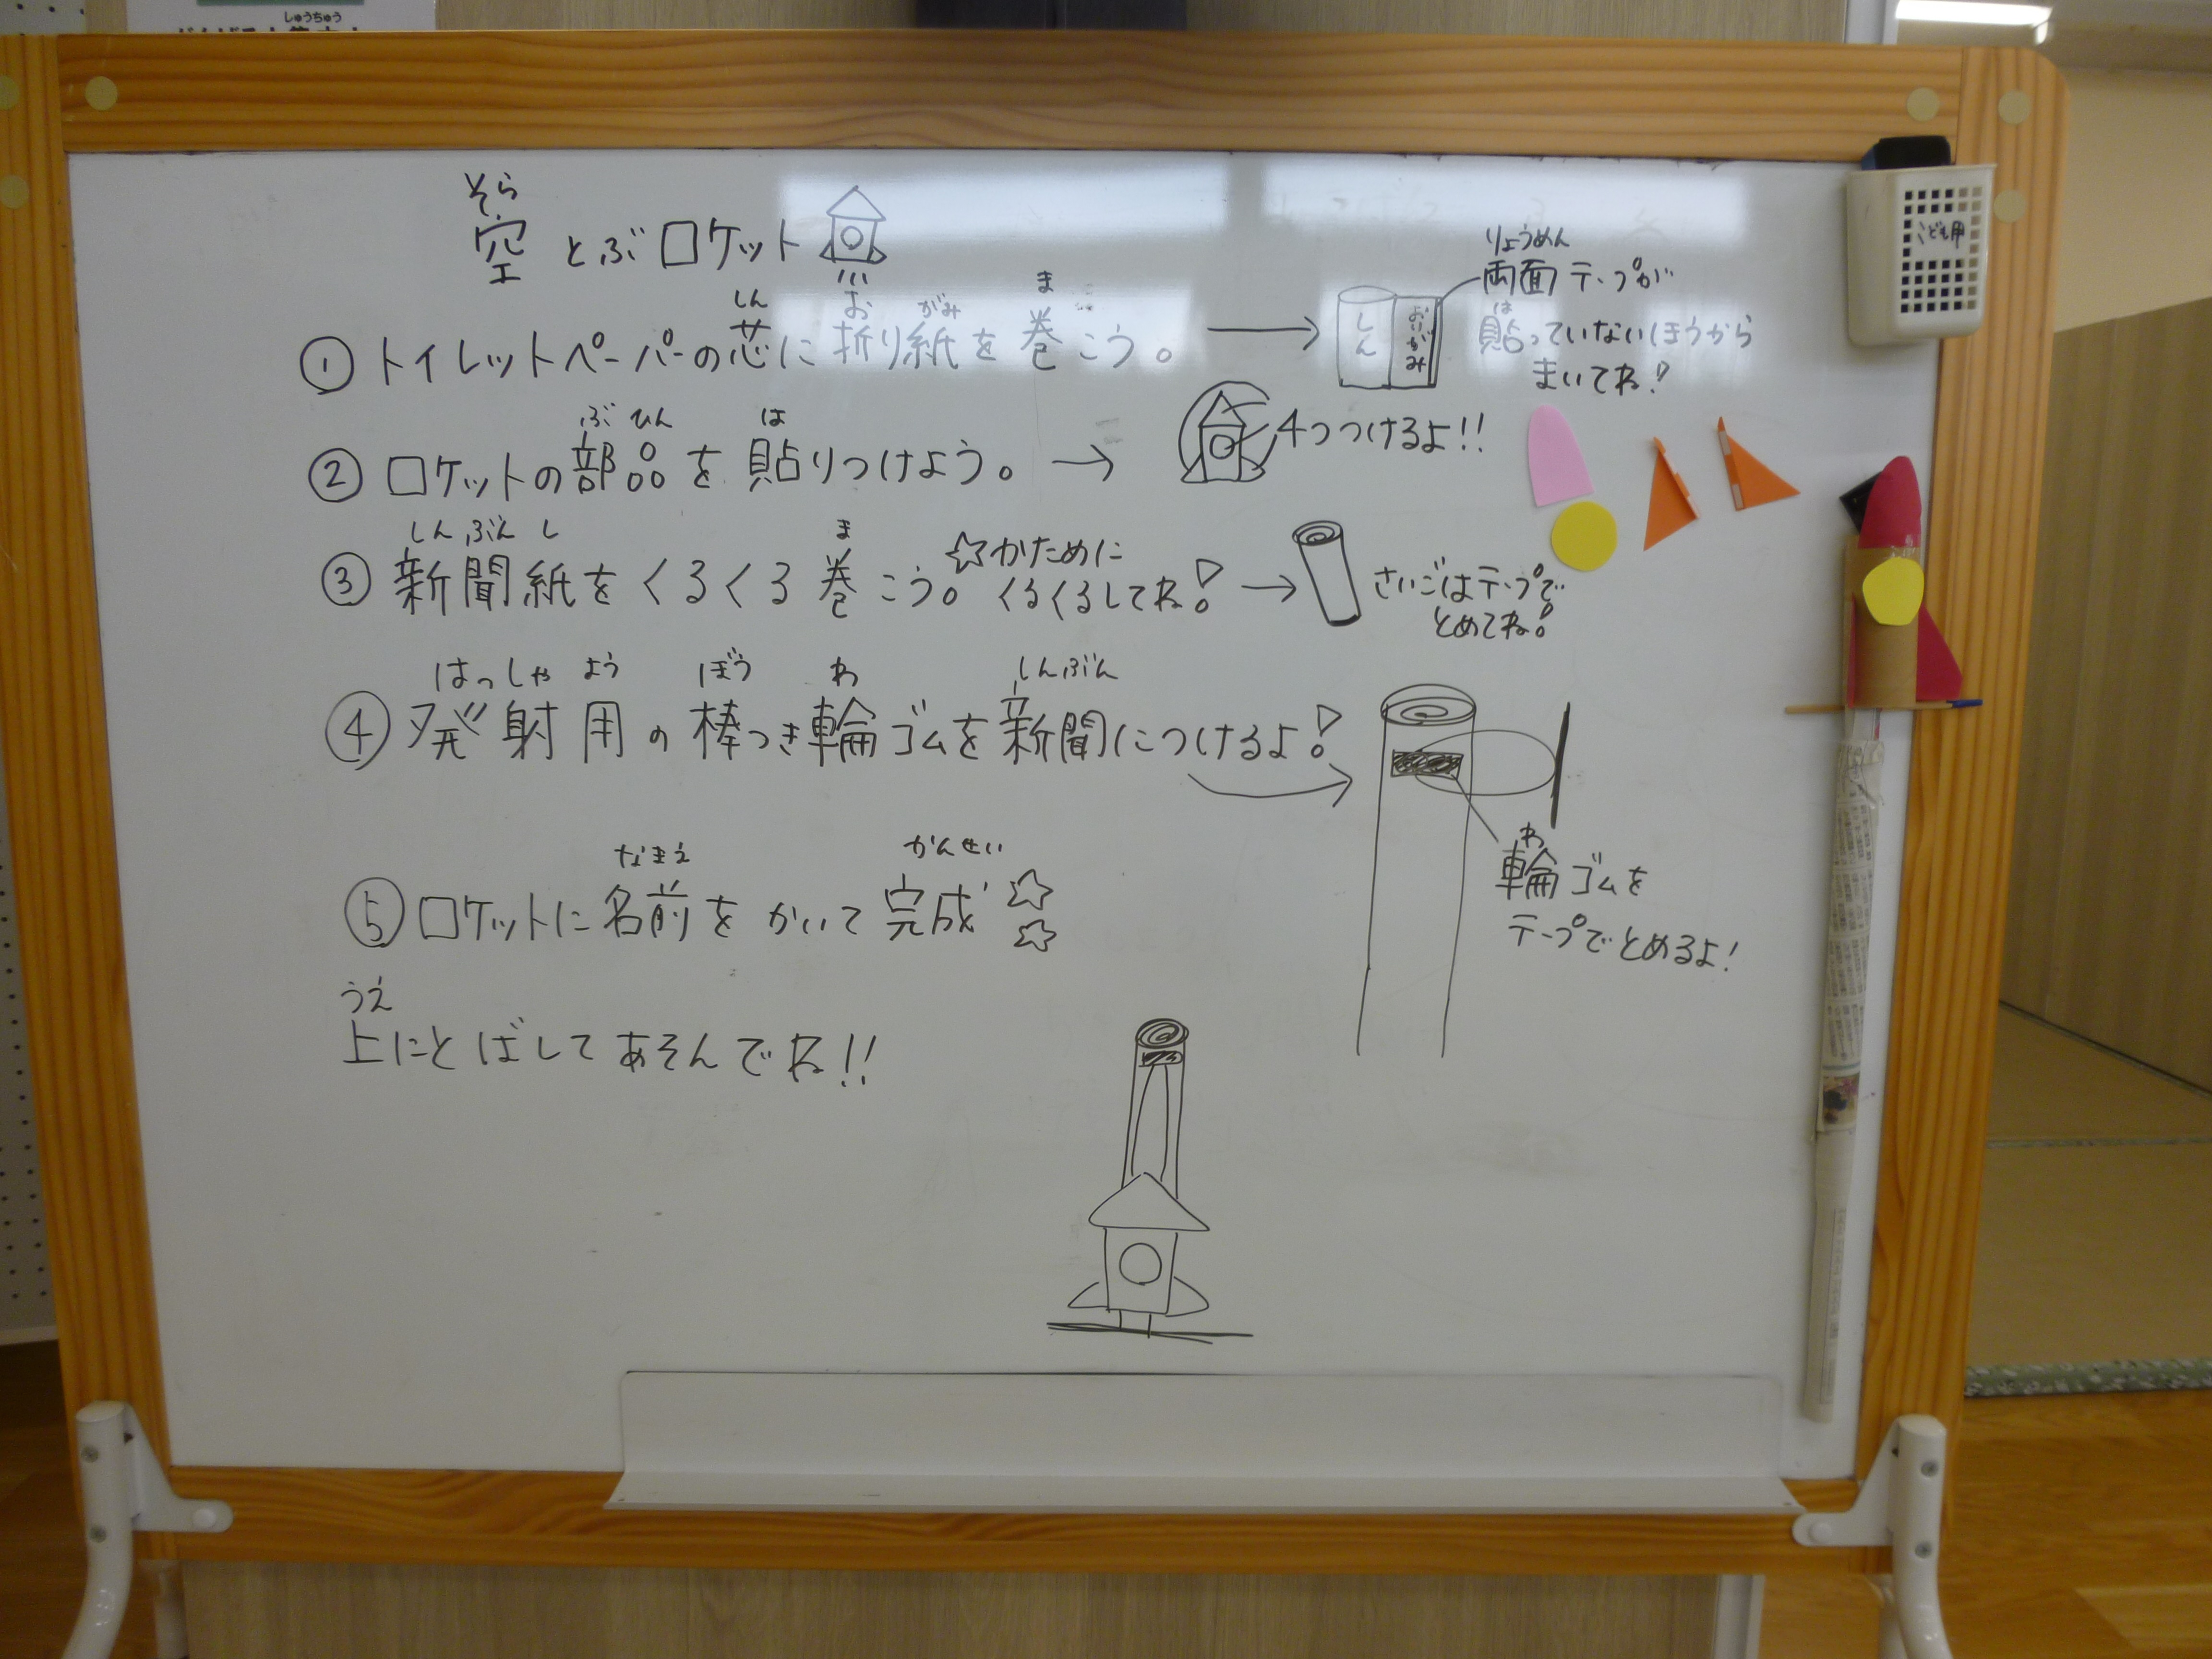 しゅうちゅう
そら
空とぶロケット
しん お がみ ま
① トイレットペーパーの芯に折り紙を巻こう。
しん
おりがみ
りょうめん
両面テープが
は
貼っていないほうから
まいてね!
ぶひん は
② ロケットの部品を貼りつけよう。
4つつけるよ!!
しんぶんし ま
③ 新聞紙をくるくる巻こう。
☆かために
くるくるしてね!
さいごはテープで
とめてね!
はっしゃ よう ぼう わ しんぶん
④ 発射用の棒つき輪ゴムを新聞につけるよ!
わ
輪ゴムを
テープでとめるよ!
なまえ かんせい
⑤ ロケットに名前をかいて完成☆☆
うえ
上にとばしてあそんでね!!
こども用